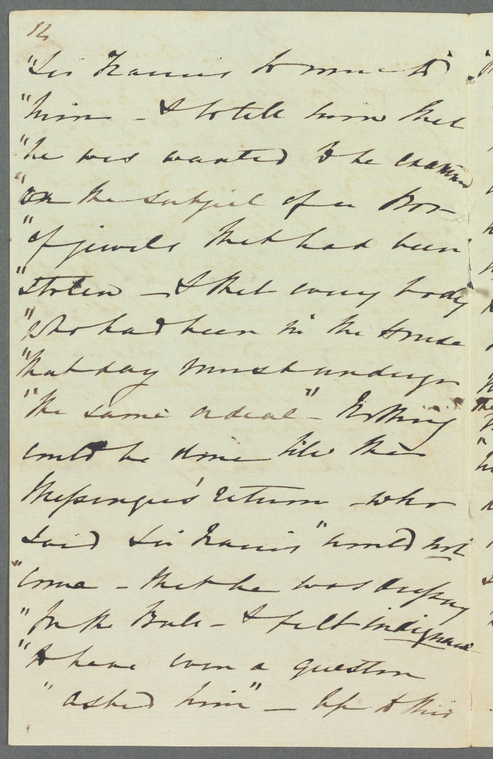 12
"Sir Francis to come to
"him - & to tell him that
"he was wanted to be examined
"on the subject of a Box
"of jewels that had been
"stolen - & that every body
"who had been in the House
"that day must undergo
"the same ordeal" - Nothing
could be done till the
Messenger's return - who
said Sir Francis "would not
"come - that he was dressing
"for the Ball - & felt indignant
"to have even a question
"asked him" - Up to this